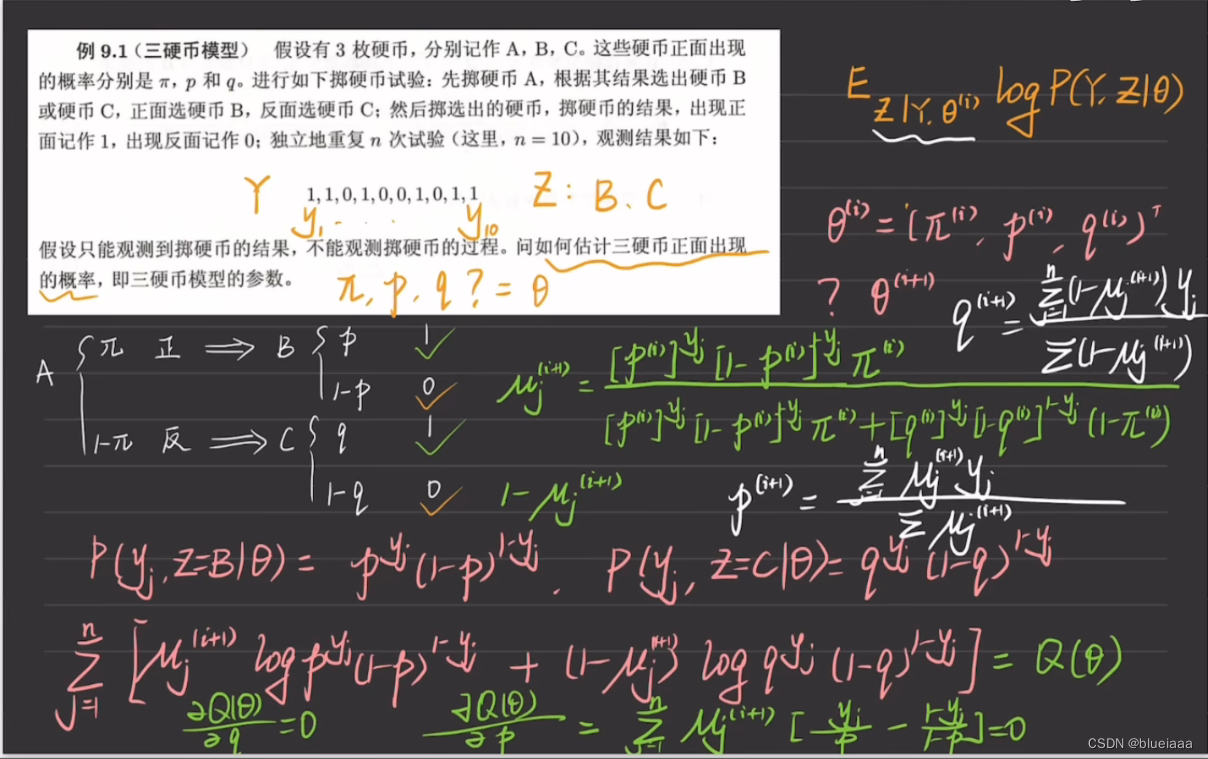 例 9.1（三硬币模型） 假设有 3 枚硬币，分别记作 A，B，C。这些硬币正面出现
的概率分别是 π，p 和 q。进行如下掷硬币试验：先掷硬币 A，根据其结果选出硬币 B
或硬币 C，正面选硬币 B，反面选硬币 C；然后掷选出的硬币，掷硬币的结果，出现正
面记作 1，出现反面记作 0；独立地重复 n 次试验（这里，n = 10），观测结果如下：
Y 1,1,0,1,0,0,1,0,1,1 Z: B、C
y₁ . . . y₁₀
假设只能观测到掷硬币的结果，不能观测掷硬币的过程。问如何估计三硬币正面出现
的概率，即三硬币模型的参数。
π, p, q ? = θ
E_{Z|Y,θ^{(i)}} log P(Y, Z|θ)
θ^{(i)} = (π^{(i)}, p^{(i)}, q^{(i)})^T
? θ^{(i+1)}
q^{(i+1)} = \frac{\sum_{j=1}^{n} (1-μ_j^{(i+1)}) y_j}{\sum (1-μ_j^{(i+1)})}
A { π 正 ⟹ B { p 1 ✓
1-p 0 ✓
1-π 反 ⟹ C { q 1 ✓
1-q 0 ✓
μ_j^{(i+1)} = \frac{[p^{(i)}]^{y_j} [1-p^{(i)}]^{1-y_j} π^{(i)}}{[p^{(i)}]^{y_j} [1-p^{(i)}]^{1-y_j} π^{(i)} + [q^{(i)}]^{y_j} [1-q^{(i)}]^{1-y_j} (1-π^{(i)})}
1-μ_j^{(i+1)}
p^{(i+1)} = \frac{\sum_{j=1}^{n} μ_j^{(i+1)} y_j}{\sum μ_j^{(i+1)}}
P(y_j, Z=B|θ) = p^{y_j} (1-p)^{1-y_j} . P(y_j, Z=C|θ) = q^{y_j} (1-q)^{1-y_j}
\sum_{j=1}^{n} [μ_j^{(i+1)} log p^{y_j} (1-p)^{1-y_j} + (1-μ_j^{(i+1)}) log q^{y_j} (1-q)^{1-y_j}] = Q(θ)
\frac{∂Q(θ)}{∂q} = 0 \frac{∂Q(θ)}{∂p} = \sum_{j=1}^{n} μ_j^{(i+1)} [\frac{y_j}{p} - \frac{1-y_j}{1-p}] = 0
CSDN @blueiaaa